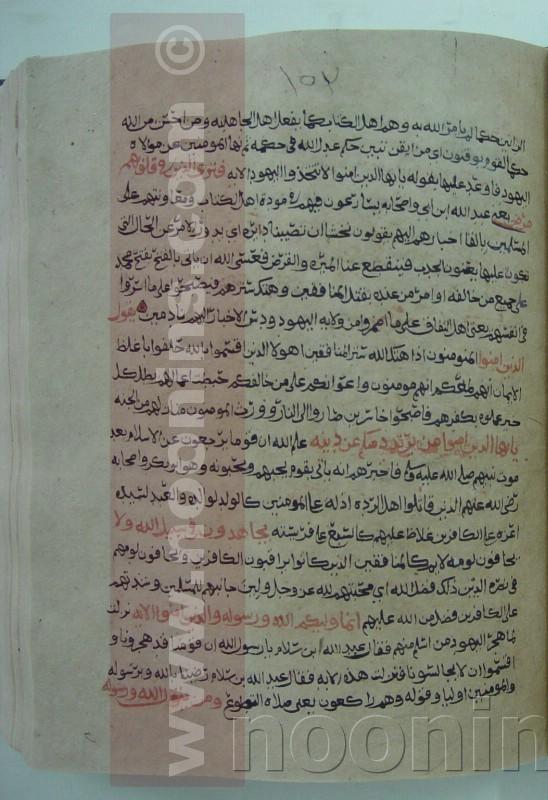 ١٥٢
الزانين حكما لم يامر الله به وهم اهل الكتاب كما يفعل اهل الجاهليه ومن احسن من الله
حكما لقوم يوقنون اي من ايقن تبين حكم عدل الله في حكمه نهيا المومنين عن موالاه
اليهود واوعد عليها بقوله يايها الذين امنوا لا تتخذوا اليهود الايه فترى الذين في قلوبهم
مرض يعني عبد الله ابن ابي واصحابه يسارعون فيهم في موده اهل الكتاب ومعاونتهم على
المسلمين بالقا اخبارهم اليهم يقولون نخشى ان تصيبنا دائره اي يدور الامر عن الحال التي
نكون عليها يعنون الجدب فينقطع عنا الميره والقرض فعسى الله ان ياتي بالفتح بفتح محمد
على جميع من خالفه او امر من عنده بقتل المنافقين وهتك سترهم فيصبحوا على ما اسروا
في انفسهم يعني اهل النفاق على ما اضمروا من ولايه اليهود ودس الاخبار اليهم نادمين يقول
الذين امنوا المومنون اذا هتك الله ستر المنافقين اهولا الذين اقسموا بالله حلفوا باغلظ
الايمان انهم لمعكم انهم مومنون واعوانكم على من خالفكم حبطت اعمالهم بطل كل
خير عملوه بكفرهم فاصبحوا خاسرين صاروا الى النار وورث المومنون منازلهم من الجنه
يايها الذين امنوا من يرتدد منكم عن دينه علم الله ان قوما يرجعون عن الاسلام بعد
موت نبيهم صلى الله عليه وسلم فاخبرهم انه ياتي بقوم يحبهم ويحبونه وهم ابو بكر واصحابه
رضي الله عنهم الذين قاتلوا اهل الرده اذله على المومنين كالولد لوالده والعبد لسيده
اعزه على الكافرين غلاظ عليهم كالسبع على فريسته يجاهدون في سبيل الله ولا
يخافون لومه لايم كالمنافقين الذين كانوا يراقبون الكافرين ويخافون لومهم
في نصره الدين ذلك فضل الله اي محبتهم لله عز وجل ولين جانبهم للمسلمين وشدتهم
على الكافرين فضل من الله عليهم انما وليكم الله ورسوله والذين امنوا الايه نزلت
لما هجر اليهود من اسلم منهم فقال عبد الله ابن سلام يا رسول الله ان قومنا قد هجرونا و
اقسموا ان لا يجالسونا فنزلت هذه الايه فقال عبد الله بن سلام رضينا بالله وبرسوله
والمومنين اوليا وقوله وهم راكعون يعني صلاه التطوع ومن يتول الله ورسوله
www.noonins.com ©
noonin